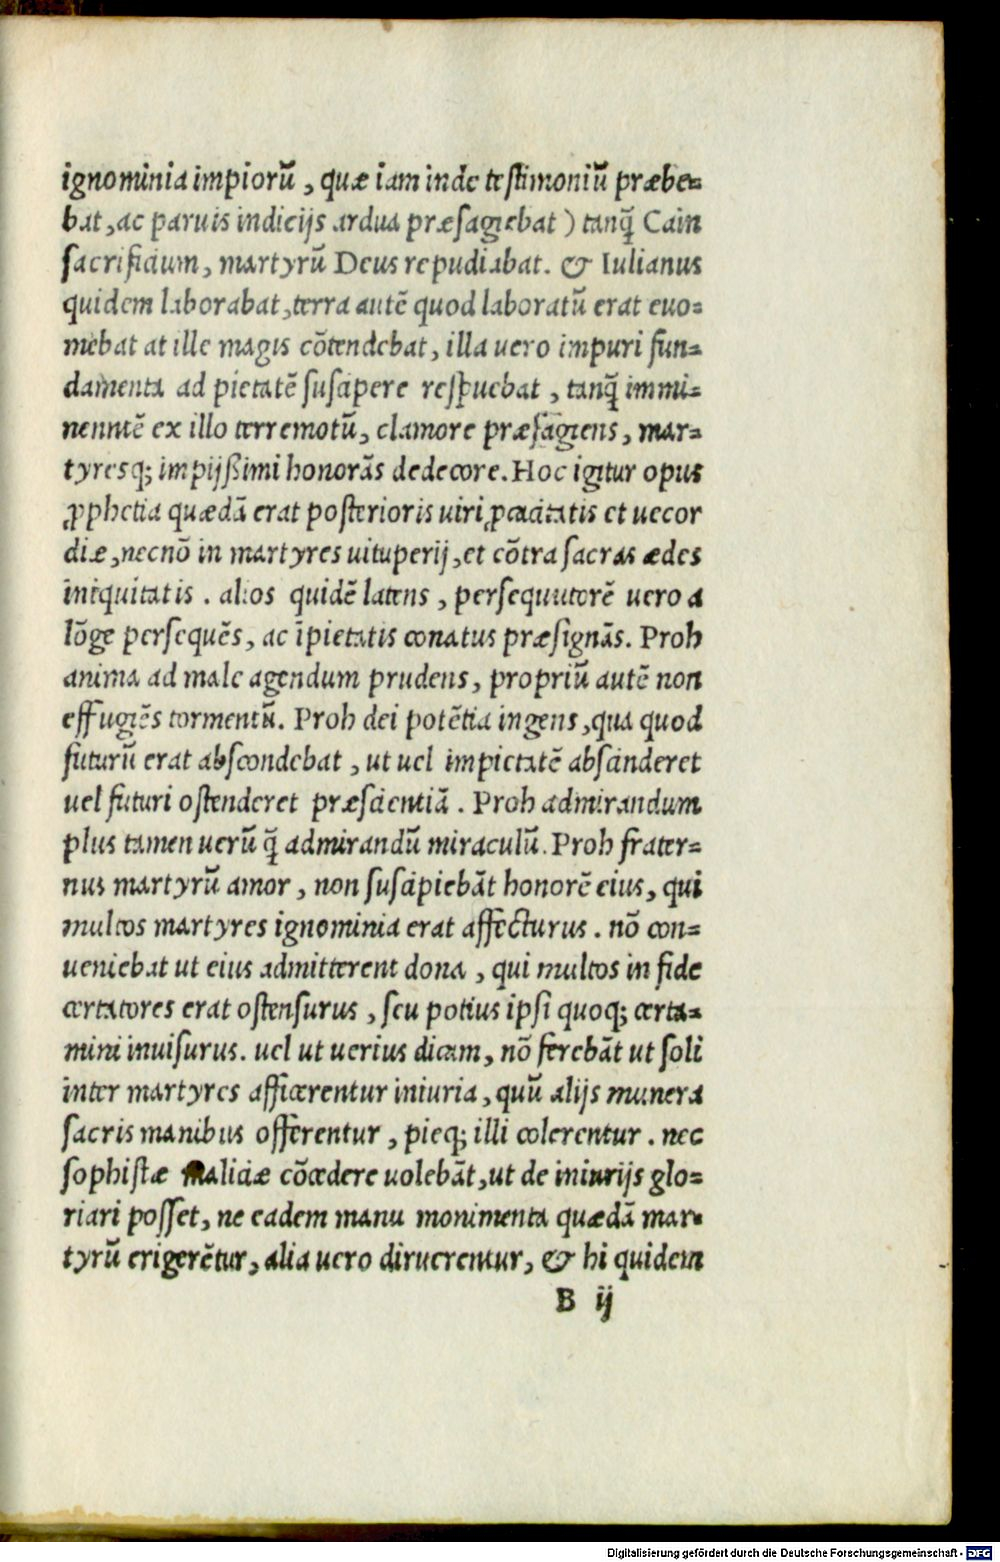 ignominia impiorū, quæ iam inde testimoniū præbe=
bat, ac paruis indicijs ardua præsagiebat) tanq̃ Cain
sacrificium, martyrū Deus repudiabat. & Iulianus
quidem laborabat, terra autē quod laboratū erat euo=
mebat at ille magis cõtendebat, illa uero impuri fun=
damenta ad pietatē suscipere respuebat, tanq̃ immi=
nentē ex illo terremotū, clamore præsagiens, mar=
tyresq; impijßimi honorãs dedecore. Hoc igitur opus
ꝓphetia quædã erat posterioris uiri ꝓcacitatis et uecor
diæ, necnõ in martyres uituperij, et cõtra sacras ædes
iniquitatis. alios quidē latens, persequutorē uero a
lõge persequēs, ac īpietatis conatus præsignãs. Proh
anima ad male agendum prudens, propriū autē non
effugiēs tormentū. Proh dei potētia ingens, qua quod
futurū erat abscondebat, ut uel impietatē abscinderet
uel futuri ostenderet præscientiã. Proh admirandum
plus tamen uerū q̃ admirandū miraculū. Proh frater=
nus martyrū amor, non suscipiebãt honorē eius, qui
multos martyres ignominia erat affecturus. nõ con=
ueniebat ut eius admitterent dona, qui multos in fide
certatores erat ostensurus, seu potius ipsi quoq; certa=
mini inuisurus. uel ut uerius dicam, nõ ferebãt ut soli
inter martyres afficerentur iniuria, quū alijs munera
sacris manibus offerentur, pieq; illi colerentur. nec
sophistæ maliciæ cõcedere uolebãt, ut de iniurijs glo=
riari posset, ne eadem manu monimenta quædã mar=
tyrū erigerētur, alia uero diruerentur, & hi quidem
B ij
Digitalisierung gefördert durch die Deutsche Forschungsgemeinschaft - DFG